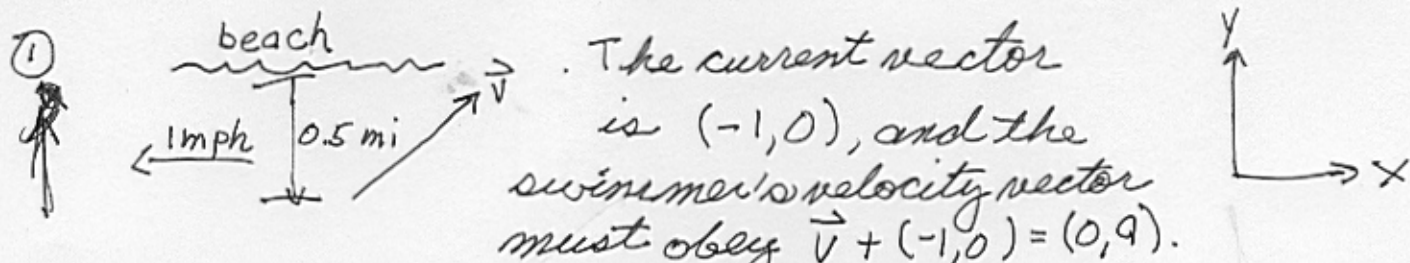 ①
beach
1mph
0.5 mi
v
. The current vector
is (-1,0), and the
swimmer's velocity vector
must obey v⃗ + (-1,0) = (0,a).
Y
X